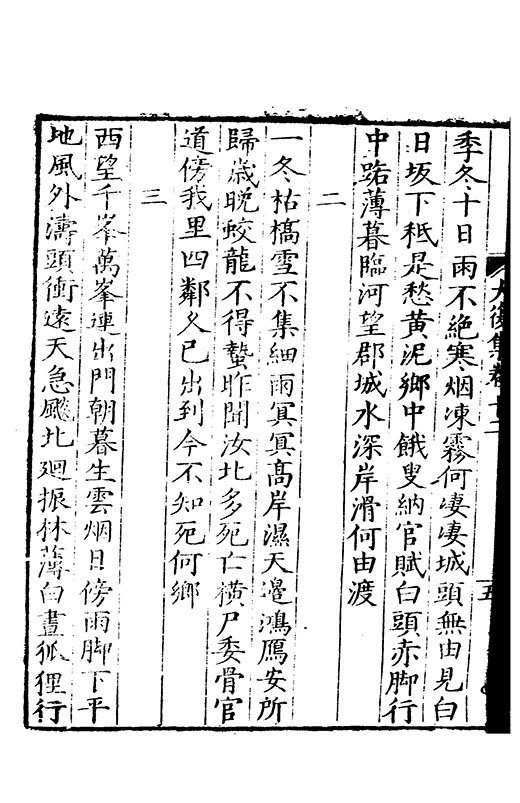 季冬十日雨不絶寒烟凍霧何凄凄城頭無由見白
日坂下秪是愁黄泥鄉中餓叟納官賦白頭赤脚行
中路薄暮臨河望郡城水深岸滑何由渡
二
一冬枯槁雪不集細雨冥冥高岸濕天邊鴻鴈安所
歸歲晚蛟龍不得蟄昨聞汝北多死亡橫尸委骨官
道傍我里四鄰乆已出到今不知死何鄉
三
西望千峯萬峯連出門朝暮生雲烟日傍雨脚下平
地風外濤頭衝遠天急飈北廻振林薄白晝狐狸行
大復集卷十二
五